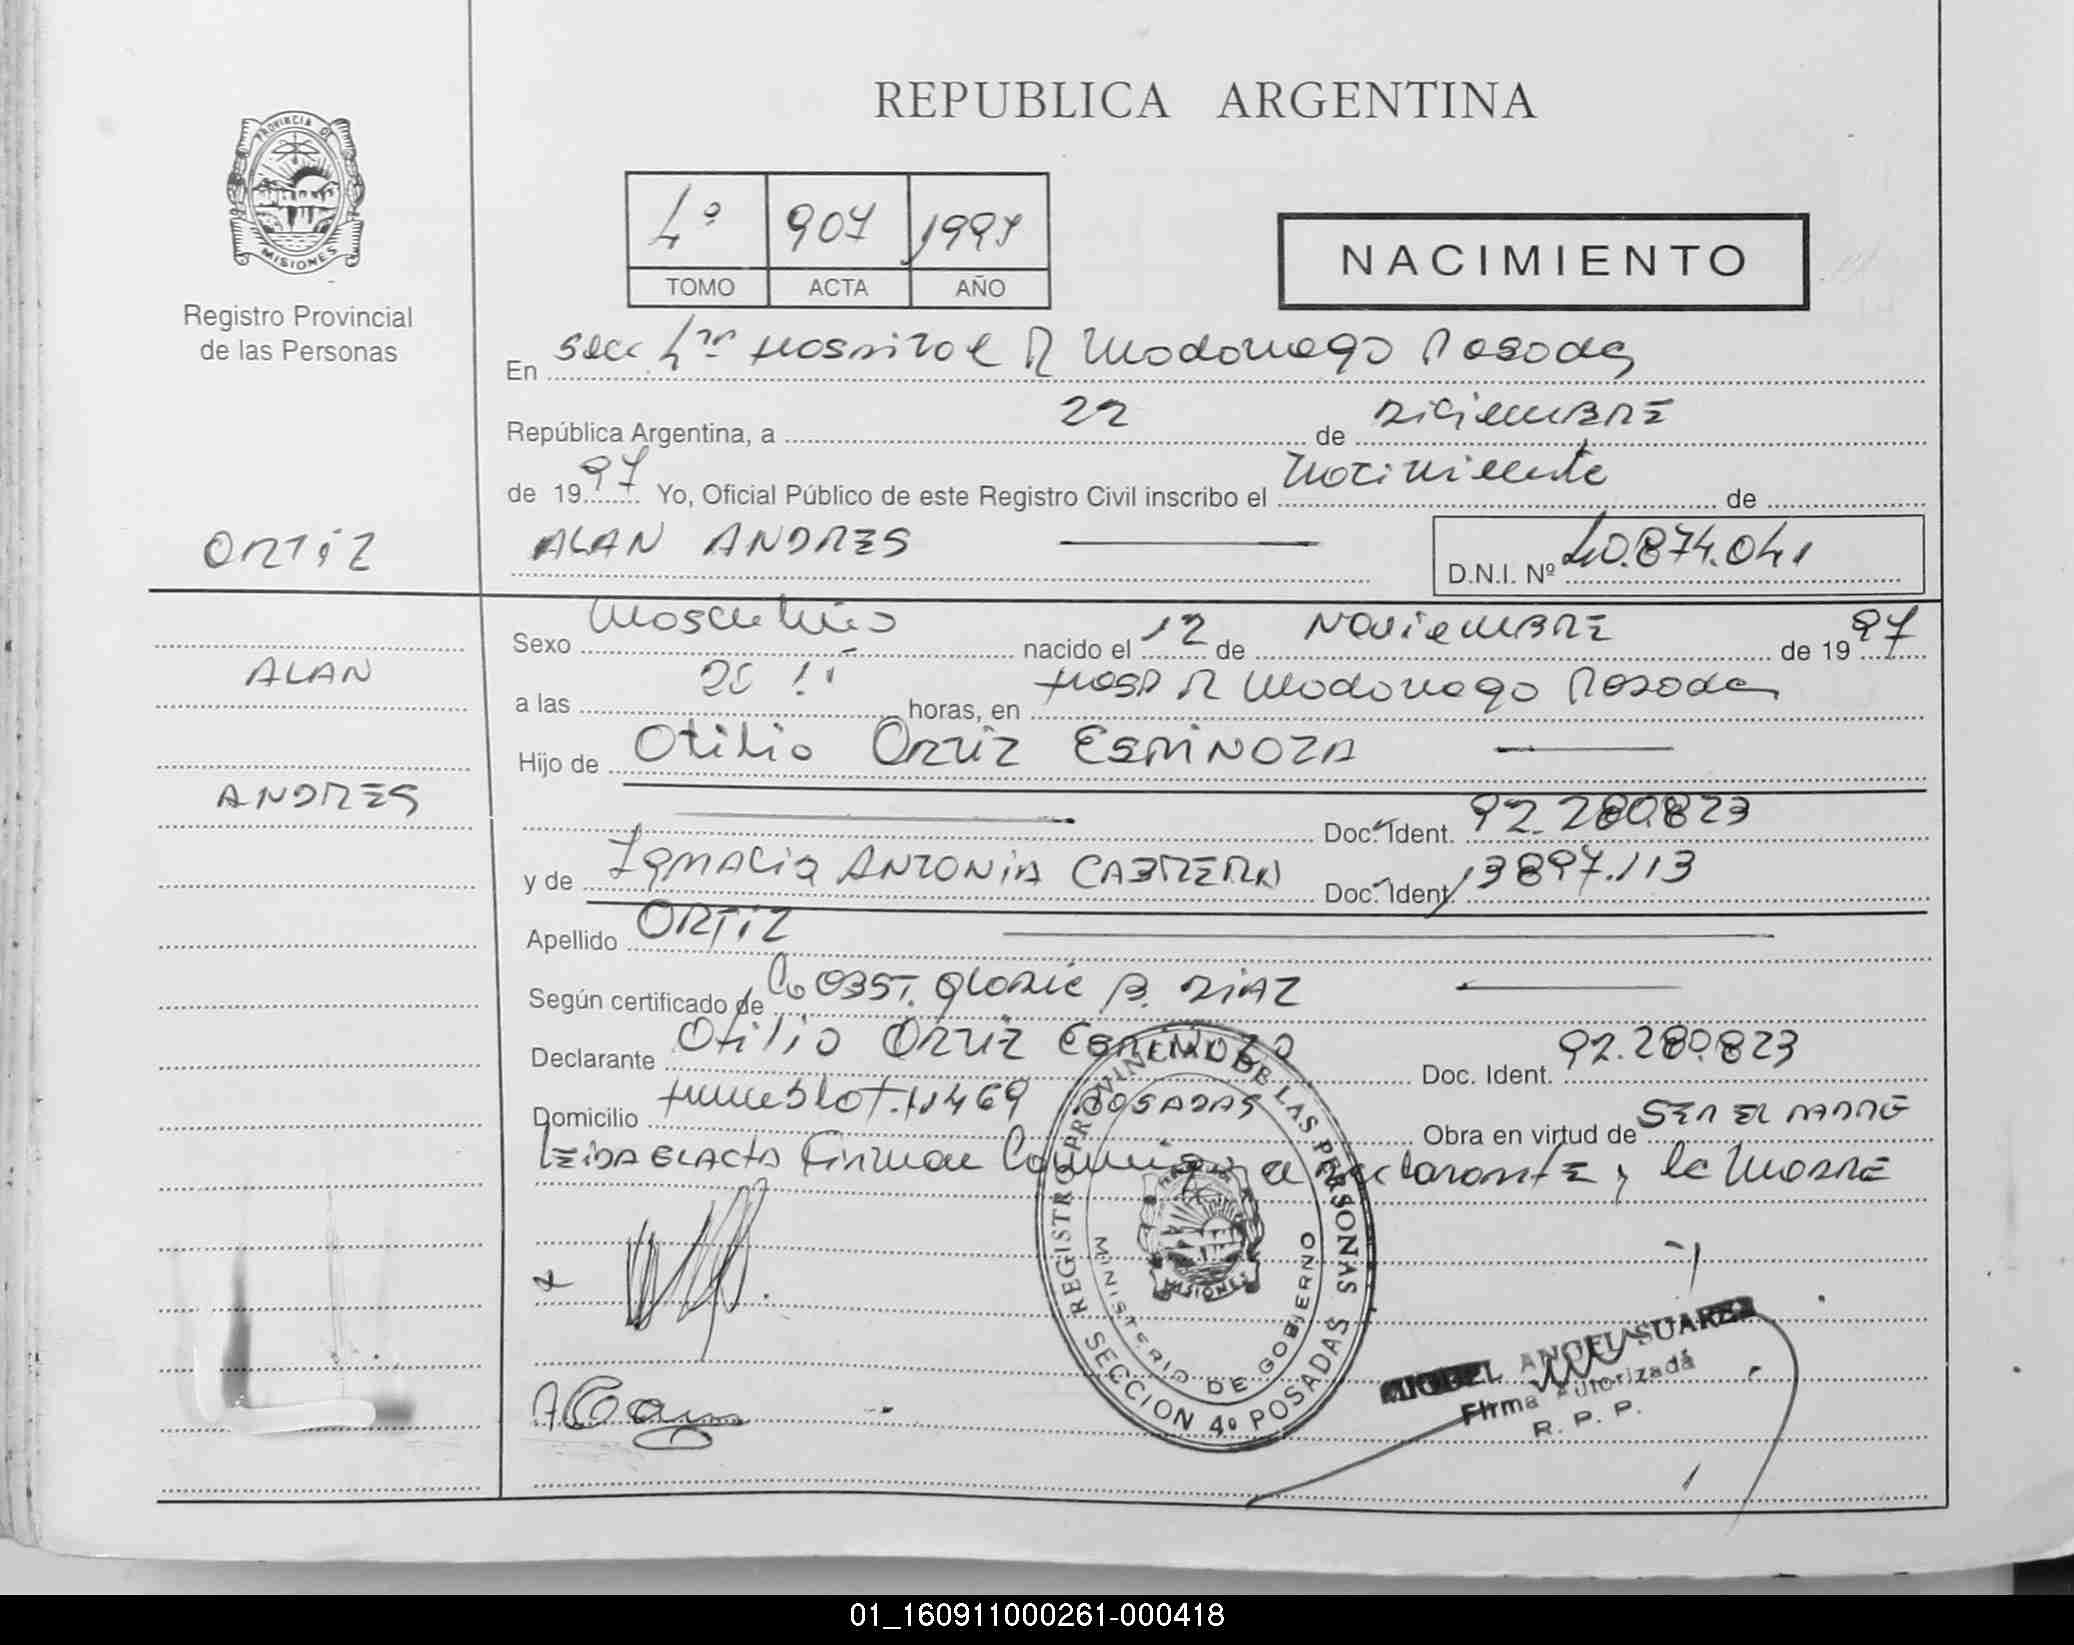 REPUBLICA ARGENTINA
PROVINCIA DE
MISIONES
Registro Provincial
de las Personas
4º 907 1997
TOMO ACTA AÑO
NACIMIENTO
En Secc 4ta Hospital R Madariaga Posadas
República Argentina, a 22 de DICIEMBRE
de 1997 Yo, Oficial Público de este Registro Civil inscribo el Nacimiento de
ORTIZ
ALAN ANDRES
D.N.I. Nº 40.874.041
ALAN
ANDRES
Sexo Masculino nacido el 12 de NOVIEMBRE de 1997
a las horas, en Hosp R Madariaga Posadas
Hijo de Otilio Ortiz ESPINOZA
Doc. Ident. 92.280.823
y de IGNACIA ANTONIA CABRERA Doc. Ident. 13897.113
Apellido ORTIZ
Según certificado de OBST. Gloria B. DIAZ
Declarante Otilio Ortiz Espinoza Doc. Ident. 92.280.823
Domicilio 11469 POSADAS Obra en virtud de SER EL PADRE
LEIDA EL ACTA Firman Conmigo el declarante y la MADRE
REGISTRO PROVINCIAL DE LAS PERSONAS
MINISTERIO DE GOBIERNO
MISIONES
SECCION 4º POSADAS
MIGUEL ANGEL SUAREZ
Firma Autorizada
R. P. P.
01_160911000261-000418